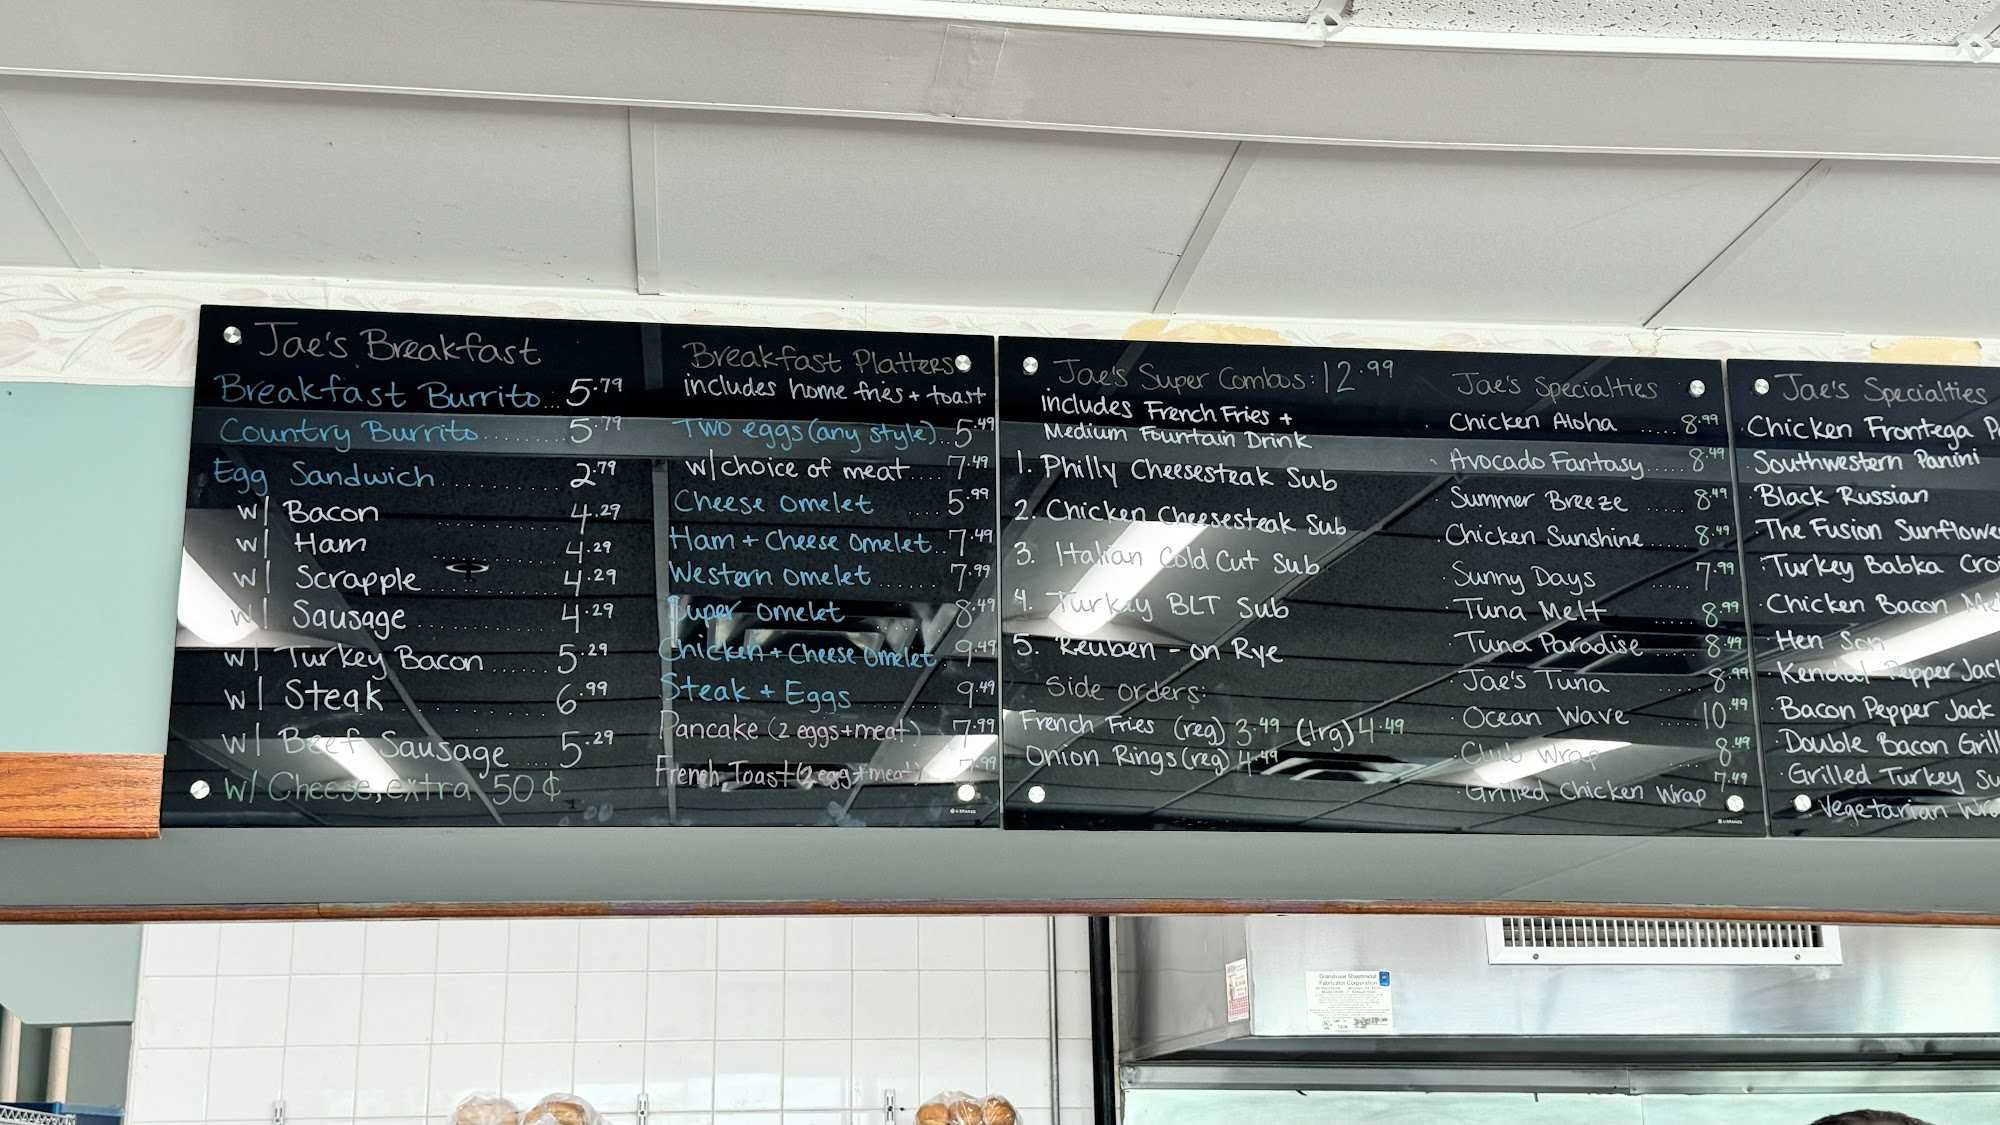 Jae's Breakfast
Breakfast Burrito... 5.79
Country Burrito......... 5.79
Egg Sandwich.......... 2.79
w/ Bacon .......... 4.29
w/ Ham ....... 4.29
w/ Scrapple .......... 4.29
w/ Sausage .......... 4.29
w/ Turkey Bacon ..... 5.29
w/ Steak .......... 6.99
w/ Beef Sausage ... 5.29
w/ Cheese, extra 50¢
Breakfast Platters
includes home fries + toast
Two eggs (any style).. 5.49
w/choice of meat.... 7.49
Cheese Omelet ...... 5.99
Ham + Cheese Omelet.. 7.49
Western Omelet ...... 7.99
Super Omelet ........ 8.49
Chicken + Cheese Omelet. 9.49
Steak + Eggs ........ 9.49
Pancake (2 eggs+meat) 7.99
French Toast (2 egg+meat) 7.99
U BRANDS
Jae's Super Combos: 12.99
includes French Fries +
Medium Fountain Drink
1. Philly Cheesesteak Sub
2. Chicken Cheesesteak Sub
3. Italian Cold Cut Sub
4. Turkey BLT Sub
5. Reuben - on Rye
Side orders:
French Fries (reg) 3.49 (lrg) 4.49
Onion Rings (reg) 4.49
Jae's Specialties
· Chicken Aloha ..... 8.99
· Avocado Fantasy..... 8.49
· Summer Breeze ..... 8.49
· Chicken Sunshine.... 8.49
· Sunny Days ..... 7.99
· Tuna Melt ..... 8.99
· Tuna Paradise ..... 8.49
· Jae's Tuna ..... 8.99
· Ocean Wave ..... 10.49
· Club Wrap .... 8.49
· Grilled Chicken Wrap 7.49
U BRANDS
Jae's Specialties
· Chicken Frontega
· Southwestern Panini
· Black Russian
· The Fusion Sunflower
· Turkey Babka
· Chicken Bacon
· Hen Son
· Kendal Pepper Jack
· Bacon Pepper Jack
· Double Bacon Grill
· Grilled Turkey
· Vegetarian
Grandview Sheetmetal
Fabricator Corporation